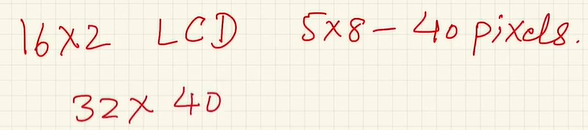 16x2 LCD 5x8 - 40 pixels.
32x 40